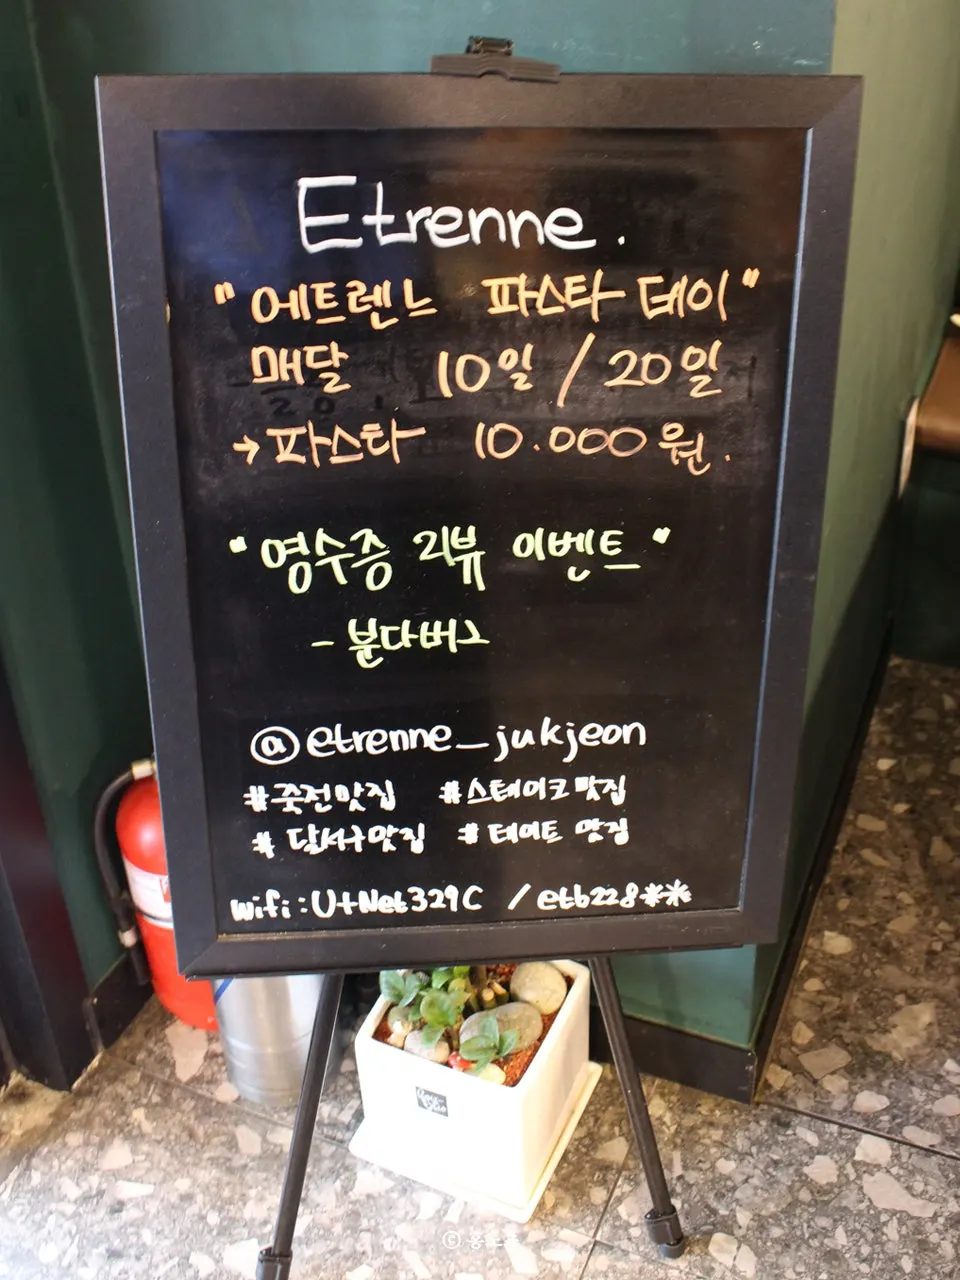 Etrenne.
"에트렌느 파스타 데이"
매달 10일 / 20일
→파스타 10.000원.
"영수증 리뷰 이벤트"
- 분다버그
@etrenne_jukjeon
#죽전맛집 #스테이크맛집
#달서구맛집 #데이트 맛집
wifi:U+Net329C / etb228**